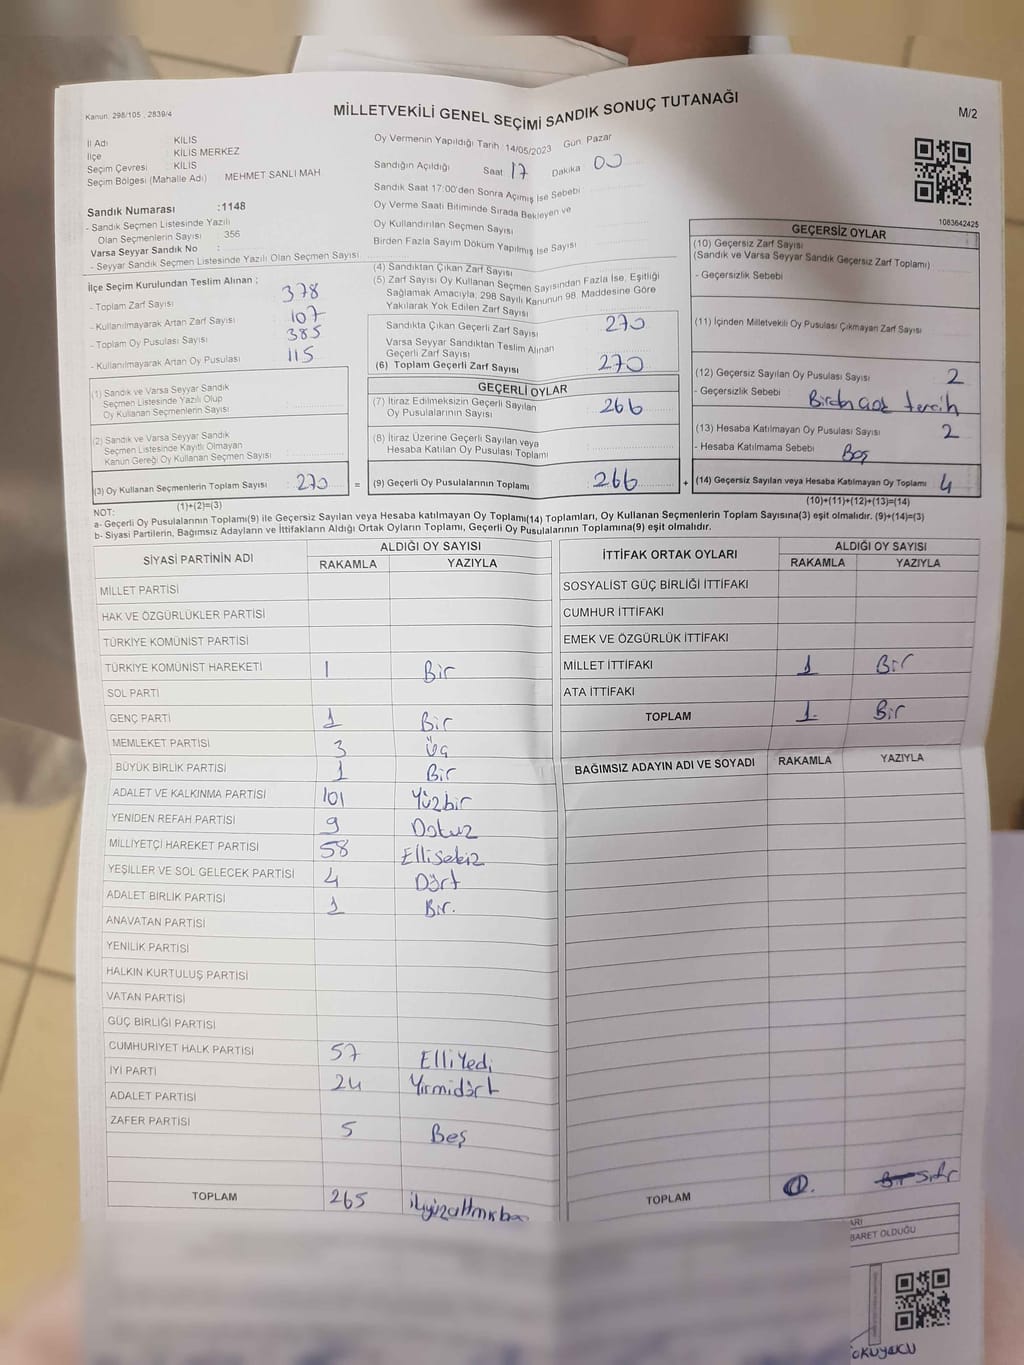 Kanun: 298/105 , 2839/4
MİLLETVEKİLİ GENEL SEÇİMİ SANDIK SONUÇ TUTANAĞI
M/2
İl Adı KİLİS
İlçe KİLİS MERKEZ
Seçim Çevresi KİLİS
Seçim Bölgesi (Mahalle Adı) MEHMET SANLI MAH.
Sandık Numarası :1148
- Sandık Seçmen Listesinde Yazılı
Olan Seçmenlerin Sayısı 356
Varsa Seyyar Sandık No :
- Seyyar Sandık Seçmen Listesinde Yazılı Olan Seçmen Sayısı
Oy Vermenin Yapıldığı Tarih 14/05/2023 Gün: Pazar
Sandığın Açıldığı Saat 17 Dakika 00
Sandık Saat 17:00'den Sonra Açılmış İse Sebebi
Oy Verme Saati Bitiminde Sırada Bekleyen ve
Oy Kullandırılan Seçmen Sayısı
Birden Fazla Sayım Döküm Yapılmış İse Sayısı
1083642425
İlçe Seçim Kurulundan Teslim Alınan ;
- Toplam Zarf Sayısı 378
- Kullanılmayarak Artan Zarf Sayısı 107
- Toplam Oy Pusulası Sayısı 385
- Kullanılmayarak Artan Oy Pusulası 115
(1) Sandık ve Varsa Seyyar Sandık
Seçmen Listesinde Yazılı Olup
Oy Kullanan Seçmenlerin Sayısı
(2) Sandık ve Varsa Seyyar Sandık
Seçmen Listesinde Kayıtlı Olmayan
Kanun Gereği Oy Kullanan Seçmen Sayısı
(3) Oy Kullanan Seçmenlerin Toplam Sayısı 270 =
(1)+(2)=(3)
(4) Sandıktan Çıkan Zarf Sayısı
(5) Zarf Sayısı Oy Kullanan Seçmen Sayısından Fazla İse, Eşitliği
Sağlamak Amacıyla; 298 Sayılı Kanunun 98. Maddesine Göre
Yakılarak Yok Edilen Zarf Sayısı
Sandıkta Çıkan Geçerli Zarf Sayısı 270
Varsa Seyyar Sandıktan Teslim Alınan
Geçerli Zarf Sayısı
(6) Toplam Geçerli Zarf Sayısı 270
GEÇERLİ OYLAR
(7) İtiraz Edilmeksizin Geçerli Sayılan
Oy Pusulalarının Sayısı 266
(8) İtiraz Üzerine Geçerli Sayılan veya
Hesaba Katılan Oy Pusulası Toplamı
(9) Geçerli Oy Pusulalarının Toplamı 266 +
GEÇERSİZ OYLAR
(10) Geçersiz Zarf Sayısı
(Sandık ve Varsa Seyyar Sandık Geçersiz Zarf Toplamı)
- Geçersizlik Sebebi
(11) İçinden Milletvekili Oy Pusulası Çıkmayan Zarf Sayısı
(12) Geçersiz Sayılan Oy Pusulası Sayısı 2
- Geçersizlik Sebebi tercih
(13) Hesaba Katılmayan Oy Pusulası Sayısı 2
- Hesaba Katılmama Sebebi Boş
(14) Geçersiz Sayılan veya Hesaba Katılmayan Oy Toplamı 4
(10)+(11)+(12)+(13)=(14)
NOT:
a- Geçerli Oy Pusulalarının Toplamı(9) ile Geçersiz Sayılan veya Hesaba katılmayan Oy Toplamı(14) Toplamları, Oy Kullanan Seçmenlerin Toplam Sayısına(3) eşit olmalıdır. (9)+(14)=(3)
b- Siyasi Partilerin, Bağımsız Adayların ve İttifakların Aldığı Ortak Oyların Toplamı, Geçerli Oy Pusulalarının Toplamına(9) eşit olmalıdır.
SİYASİ PARTİNİN ADI ALDIĞI OY SAYISI
RAKAMLA YAZIYLA
MİLLET PARTİSİ
HAK VE ÖZGÜRLÜKLER PARTİSİ
TÜRKİYE KOMÜNİST PARTİSİ
TÜRKİYE KOMÜNİST HAREKETİ 1 Bir
SOL PARTİ
GENÇ PARTİ 1 Bir
MEMLEKET PARTİSİ 3 Üç
BÜYÜK BİRLİK PARTİSİ 1 Bir
ADALET VE KALKINMA PARTİSİ 101 Yüzbir
YENİDEN REFAH PARTİSİ 9 Dokuz
MİLLİYETÇİ HAREKET PARTİSİ 58 Ellisekiz
YEŞİLLER VE SOL GELECEK PARTİSİ 4 Dört
ADALET BİRLİK PARTİSİ 1 Bir.
ANAVATAN PARTİSİ
YENİLİK PARTİSİ
HALKIN KURTULUŞ PARTİSİ
VATAN PARTİSİ
GÜÇ BİRLİĞİ PARTİSİ
CUMHURİYET HALK PARTİSİ 57 ElliYedi
İYİ PARTİ 24 Yirmidört
ADALET PARTİSİ
ZAFER PARTİSİ 5 Beş
TOPLAM 265
İTTİFAK ORTAK OYLARI ALDIĞI OY SAYISI
RAKAMLA YAZIYLA
SOSYALİST GÜÇ BİRLİĞİ İTTİFAKI
CUMHUR İTTİFAKI
EMEK VE ÖZGÜRLÜK İTTİFAKI
MİLLET İTTİFAKI 1 Bir
ATA İTTİFAKI
TOPLAM 1 Bir
BAĞIMSIZ ADAYIN ADI VE SOYADI RAKAMLA YAZIYLA
TOPLAM 0. Sıfır
ARI
BARET OLDUĞU
OKUYUCU